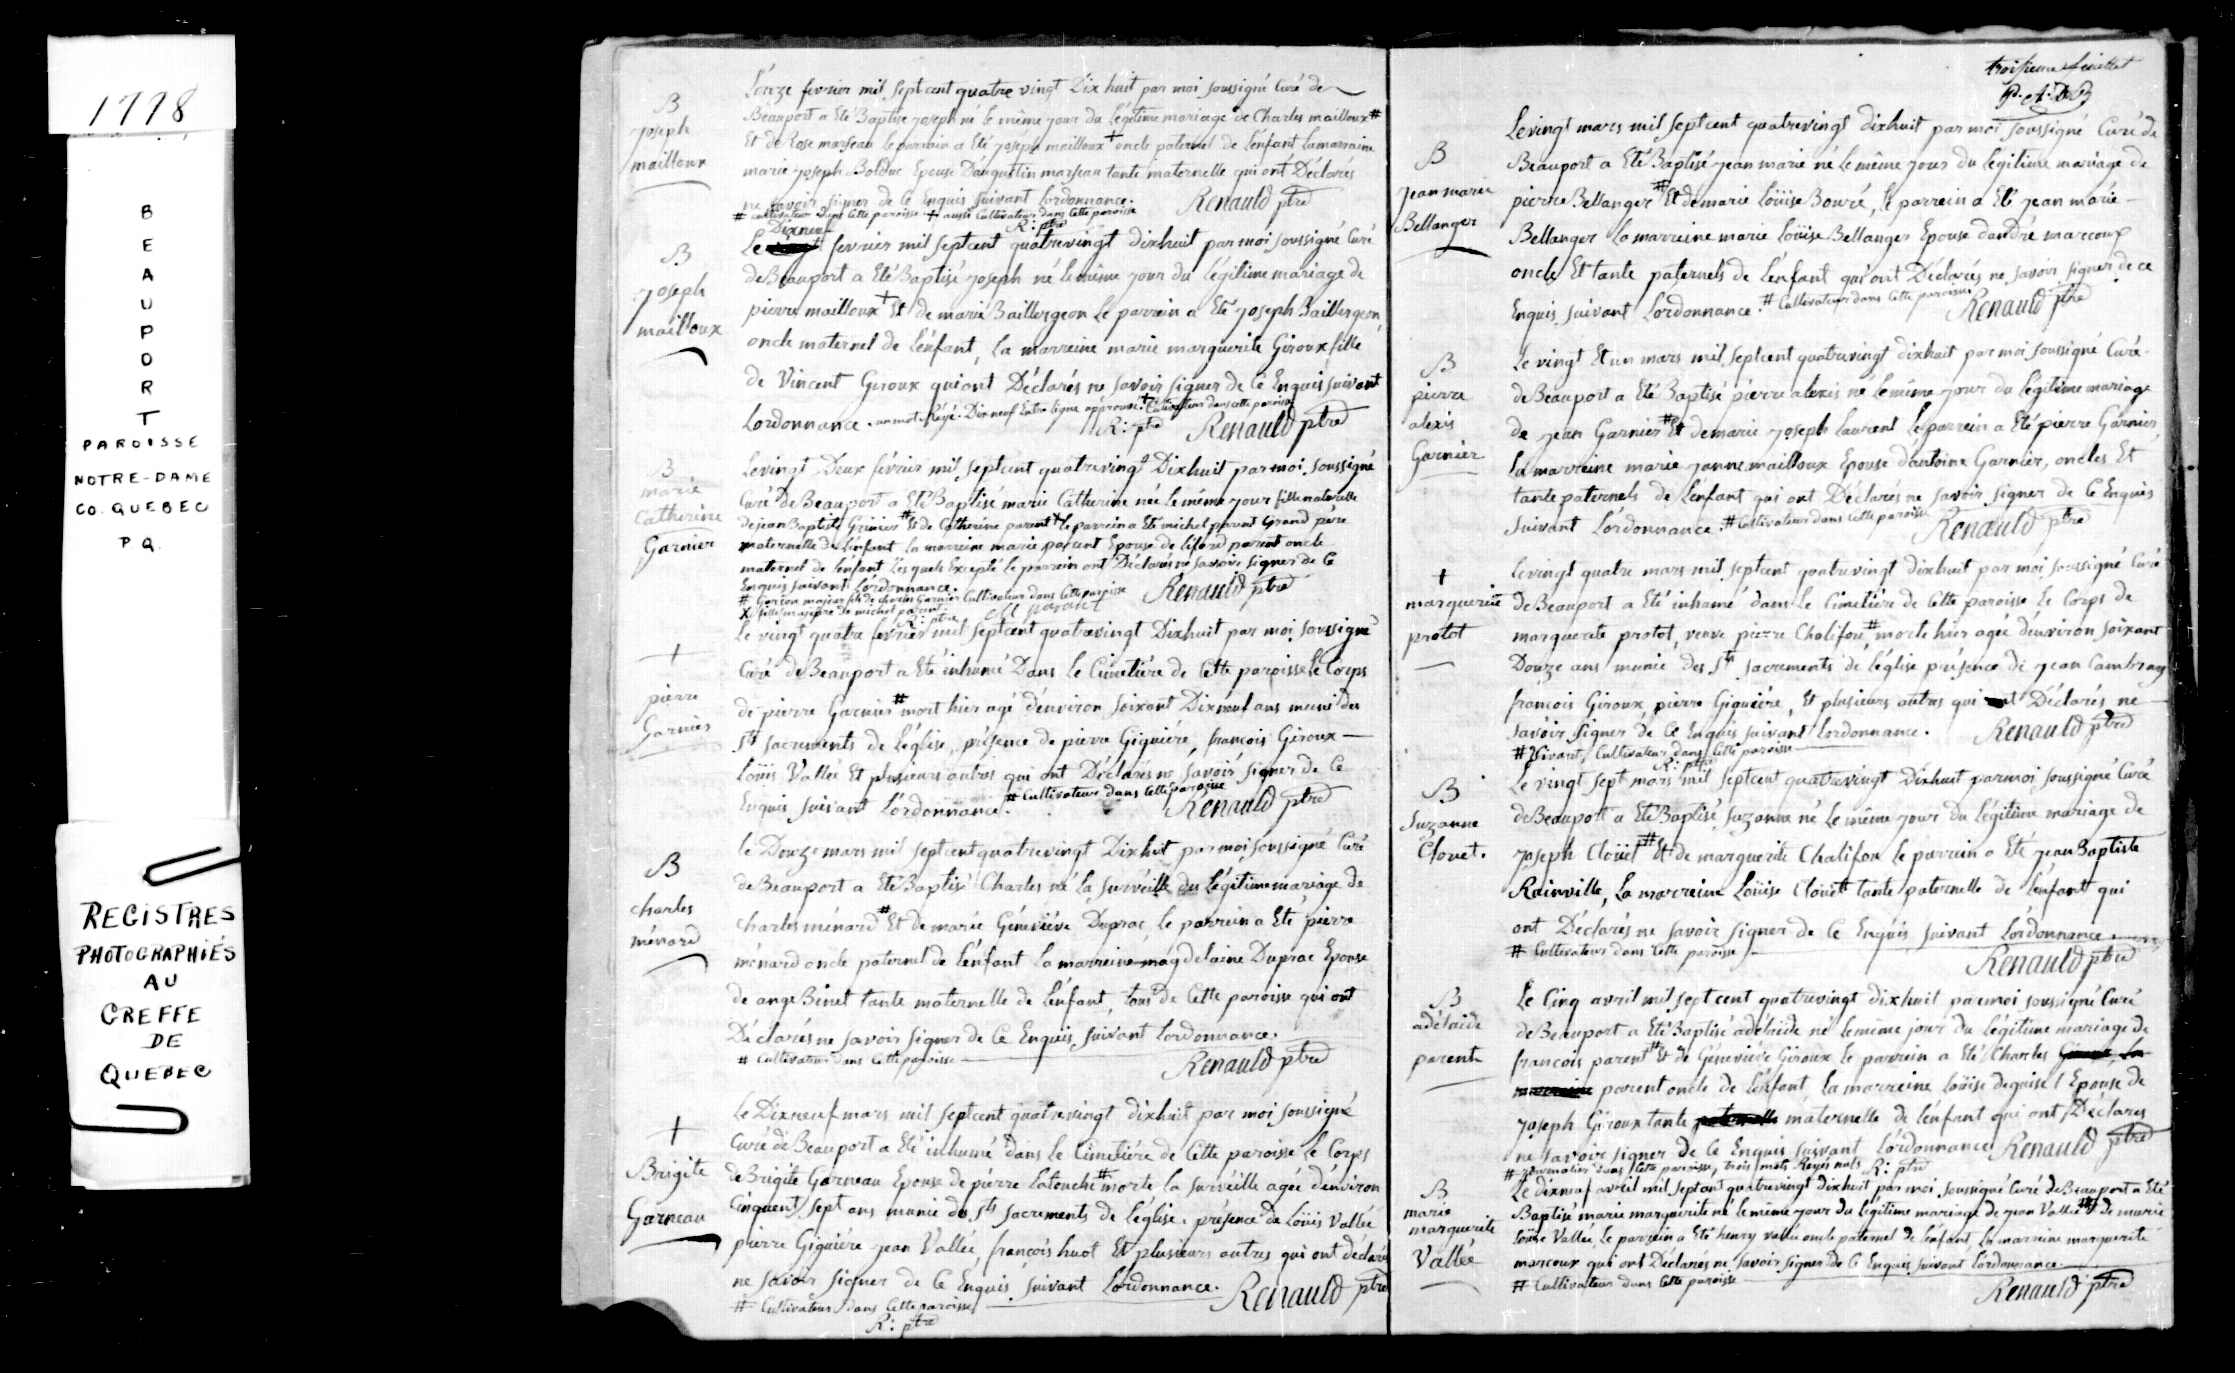 1798
B
E
A
U
P
O
R
T
PAROISSE
NOTRE-DAME
CO. QUEBEC
P Q.
REGISTRES
PHOTOGRAPHIÉS
AU
GREFFE
DE
QUEBEC
B
joseph
mailloux
L'onze fevrier mil sept cent quatre vingt Dix huit par moi soussigné Curé de
Beauport a Eté Baptisé joseph né le même jour du légitime mariage de Charles mailloux #
Et de Rose marseau le parrain a Eté joseph mailloux + oncle paternel de l'enfant la marraine
marie joseph Bolduc Epouse D'augustin marseau tante maternelle qui ont Déclarés
ne savoir signer de Ce Enquis suivant lordonnance. Renauld ptre
# cultivateur dans Cette paroisse + aussi Cultivateur dans Cette paroisse
R: ptre
B
joseph
mailloux
Dixneuf
Le fevrier mil septcent quatrevingt dixhuit par moi soussigné Curé
de Beauport a Eté Baptisé joseph né le même jour du légitime mariage de
pierre mailloux + Et de marie Baillergeon le parrein a Eté joseph Baillergeon
oncle maternel de l'enfant, la marreine marie marguerite Giroux fille
de Vincent Giroux qui ont Déclarés ne savoir signer de Ce Enquis suivant
Lordonnance. un mot Rayé. Dixneuf Entre ligne approuvé. + Cultivateur dans cette paroisse
R: ptre Renauld ptre
B
marie
Catherine
Garnier
Le vingt Deux fevrier mil septcent quatrevingt Dixhuit par moi soussigné
Curé de Beauport a Eté Baptisé marie Catherine née le même jour fille naturelle
de jean Baptiste Grinier # Et de Catherine parent + le parrein a Eté michel parent Grand père
maternelle de l'enfant la marreine marie parent Epouse de parent oncle
maternel de l'enfant lesquels Excepté le parrein ont Déclarés ne savoir signer de Ce
Enquis suivant Lordonnance. Renauld ptre
# Garçon majeur fils de charles Garnier Cultivateur dans Cette paroisse
X fille majeure de michel parent. M parant
R: ptre
+
pierre
Garnier
Le vingt quatre fevrier mil septcent quatrevingt Dixhuit par moi soussigné
Curé de Beauport a Eté inhumé Dans le Cimetière de Cette paroisse le Corps
de pierre Garnier # mort hier agé d'environ soixant Dixneuf ans muni des
Sts sacrements de L'église, présence de pierre Giguiére, françois Giroux
Loüis Vallée Et plusieurs autres qui ont Déclarés ne savoir signer de Ce
Enquis suivant Lordonnance. # Cultivateur dans Cette paroisse Renauld ptre
B
charles
ménard
le Douze mars mil septcent quatrevingt Dixhuit par moi soussigné Curé
de Beauport a Eté Baptisé Charles né la surveille du légitime mariage de
charles ménard # Et de marie Généviéve Duprac, le parrein a Eté pierre
ménard oncle paternel de l'enfant la marreine magdelaine Duprac Epouse
de ange Binet tante maternelle de l'enfant, tous de Cette paroisse qui ont
Déclarés ne savoir signer de Ce Enquis suivant Lordonnance.
# Cultivateur dans Cette paroisse Renauld ptre
+
Brigite
Garneau
Le Dixneuf mars mil septcent quatrevingt dixhuit par moi soussigné
Curé de Beauport a Eté inhumé dans le Cimetière de Cette paroisse le Corps
de Brigite Garneau Epouse de pierre Latouche # morte la surveille agée d'environ
Cinquent sept ans munie des Sts sacrements de l'église. présence de Loüis Vallée
pierre Giguiére jean Vallée, françois huot Et plusieurs autres qui ont déclaré
ne savoir signer de Ce Enquis suivant Lordonnance. Renauld ptre
# Cultivateur dans Cette paroisse
R: ptre
troisieme feuillet
B
jean marie
Bellanger
Le vingt mars mil septcent quatrevingt dixhuit par moi soussigné Curé de
Beauport a Eté Baptisé jean marie né le même jour du légitime mariage de
pierre Bellanger # Et de marie Loüise Bouré, le parrein a Eté jean marie
Bellanger la marreine marie Loüise Bellanger Epouse d'andré marcoux
oncle Et tante paternels de l'enfant qui ont Déclarés ne savoir signer de ce
Enquis suivant Lordonnance. # Cultivateur dans Cette paroisse. Renauld ptre
B
pierre
alexis
Garnier
Le vingt Et un mars mil septcent quatrevingt dixhuit par moi soussigné Curé
de Beauport a Eté Baptisé pierre alexis né le même jour du légitime mariage
de jean Garnier # Et de marie joseph Laurent le parrein a Eté pierre Garnier
la marreine marie janne mailloux Epouse d'antoine Garnier, oncles Et
tante paternels de l'enfant qui ont Déclarés ne savoir signer de Ce Enquis
suivant Lordonnance. # Cultivateur dans Cette paroisse Renauld ptre
+
marguerite
protot
Le vingt quatre mars mil septcent quatrevingt dixhuit par moi soussigné Curé
de Beauport a Eté inhumé dans le Cimetière de Cette paroisse le Corps de
marguerite protot, veuve pierre Chalifou # morte hier agée d'environ soixant
Douze ans munie des Sts sacrements de l'église présence de jean Cambray
françois Giroux, pierre Giguiére, Et plusieurs autres qui ont Déclarés ne
savoir signer de Ce Enquis suivant Lordonnance. Renauld ptre
# Vivant, Cultivateur dans Cette paroisse
R: ptre
B
Suzanne
Clouet.
Le vingt sept mars mil septcent quatrevingt Dixhuit par moi soussigné Curé
de Beauport a Eté Baptisé Suzanne né le même jour du légitime mariage de
joseph Cloüet # Et de marguerite Chalifou le parrein a Eté jean Baptiste
Rainville, la marreine Loüise Cloüet tante paternelle de l'enfant qui
ont Déclarés ne savoir signer de Ce Enquis suivant Lordonnance.
# Cultivateur dans Cette paroisse
Renauld ptre
B
adélaïde
parent
Le Cinq avril mil septcent quatrevingt dixhuit par moi soussigné Curé
de Beauport a Eté Baptisé adélaïde né le même jour du légitime mariage de
françois parent # Et de Généviéve Giroux le parrein a Eté Charles
parent oncle de l'enfant, la marreine Loüise deguise Epouse de
joseph Giroux tante maternelle de l'enfant qui ont Déclarés
ne savoir signer de Ce Enquis suivant Lordonnance Renauld ptre
# journalier dans Cette paroisse, trois mots Rayés nuls R: ptre
B
marie
marguerite
Vallée
Le dixneuf avril mil septcent quatrevingt dixhuit par moi soussigné Curé de Beauport a Eté
Baptisé marie marguerite né le même jour du légitime mariage de jean Vallée # Et de marie
Loüise Vallée, le parrein a Eté henry vallée oncle paternel de l'enfant la marreine marguerite
marcoux qui ont Déclarés ne savoir signer de Ce Enquis suivant Lordonnance.
# Cultivateur dans Cette paroisse
Renauld ptre